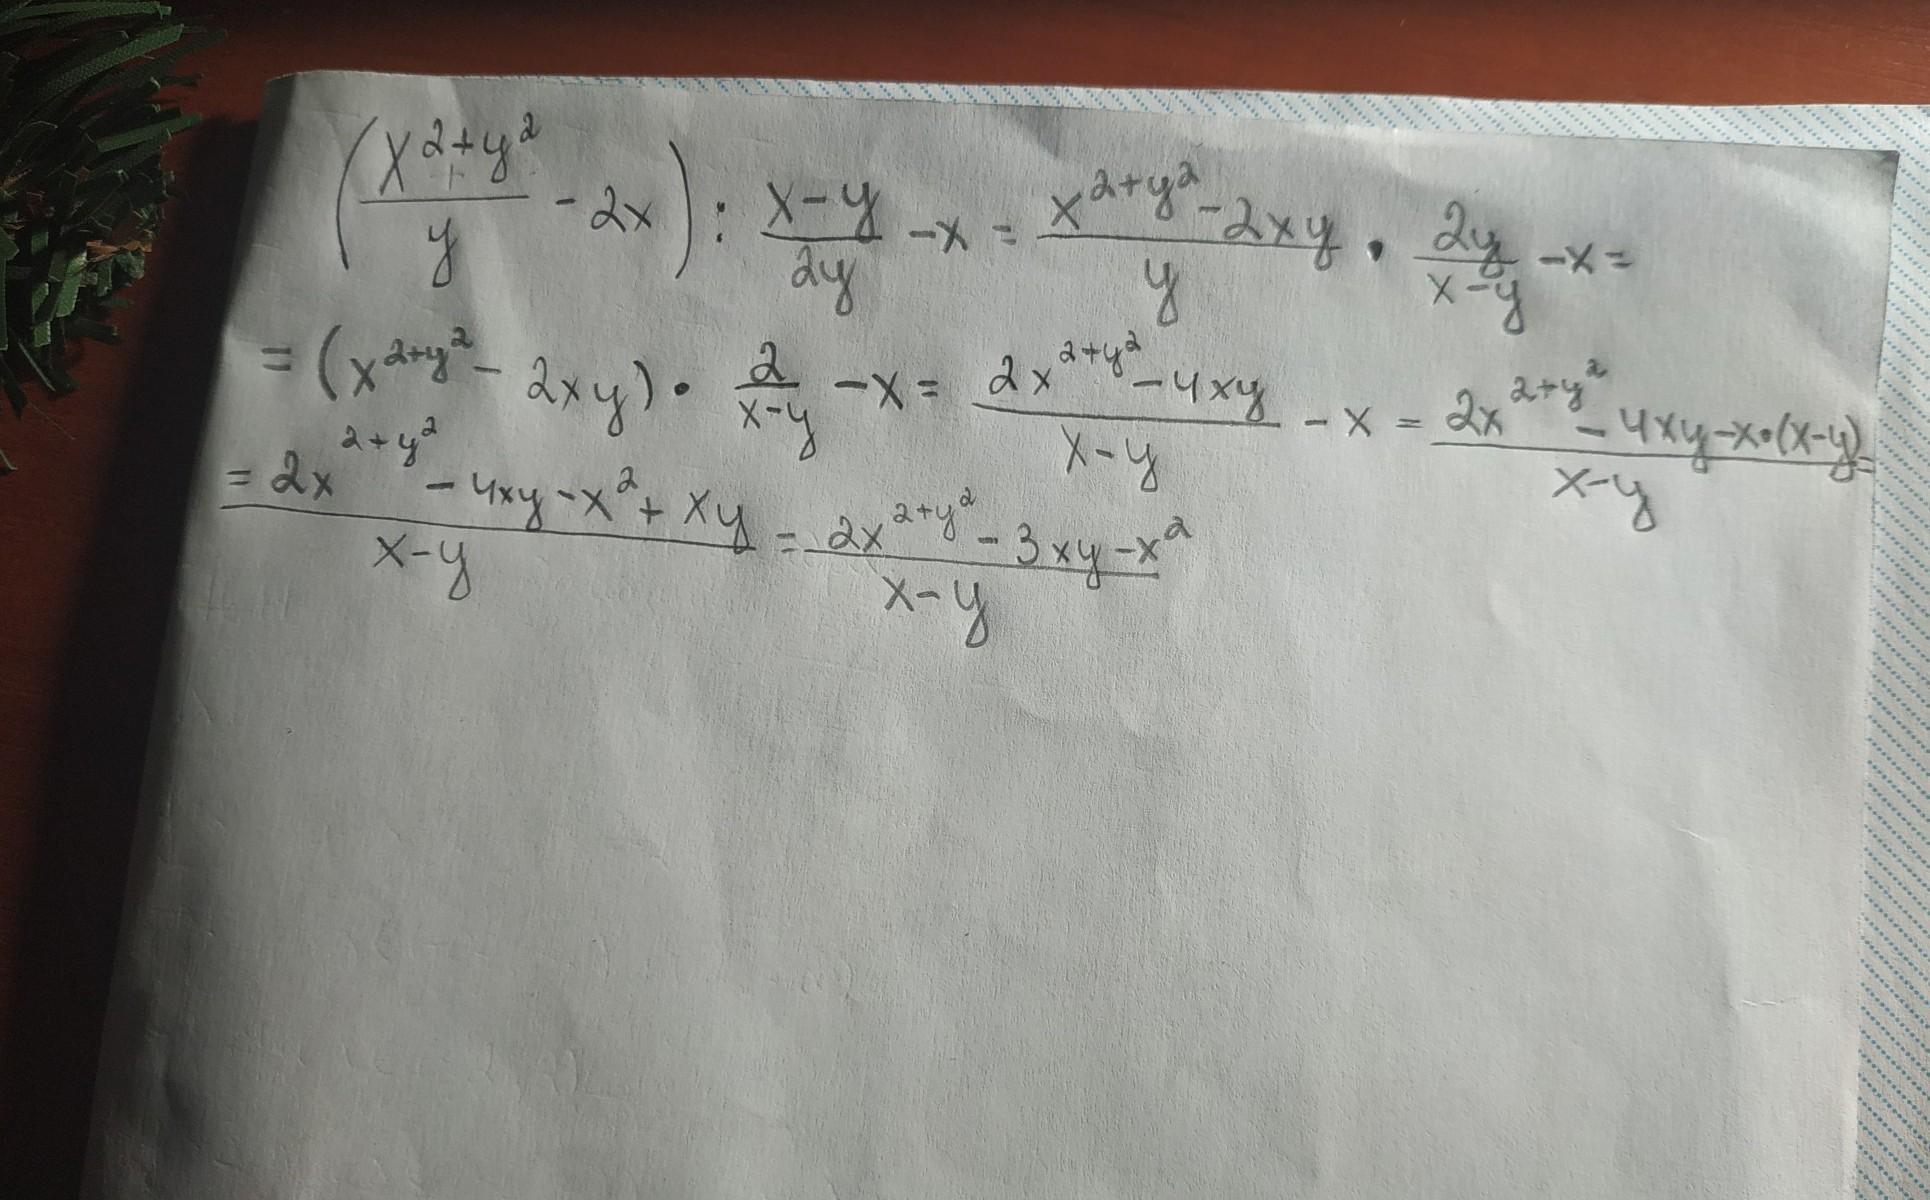 (x^{2+y^2}/y - 2x) : (x-y)/2y - x = (x^{2+y^2} - 2xy)/y · 2y/(x-y) - x =
= (x^{2+y^2} - 2xy) · 2/(x-y) - x = (2x^{2+y^2} - 4xy)/(x-y) - x = (2x^{2+y^2} - 4xy - x·(x-y))/(x-y) =
= (2x^{2+y^2} - 4xy - x^2 + xy)/(x-y) = (2x^{2+y^2} - 3xy - x^2)/(x-y)